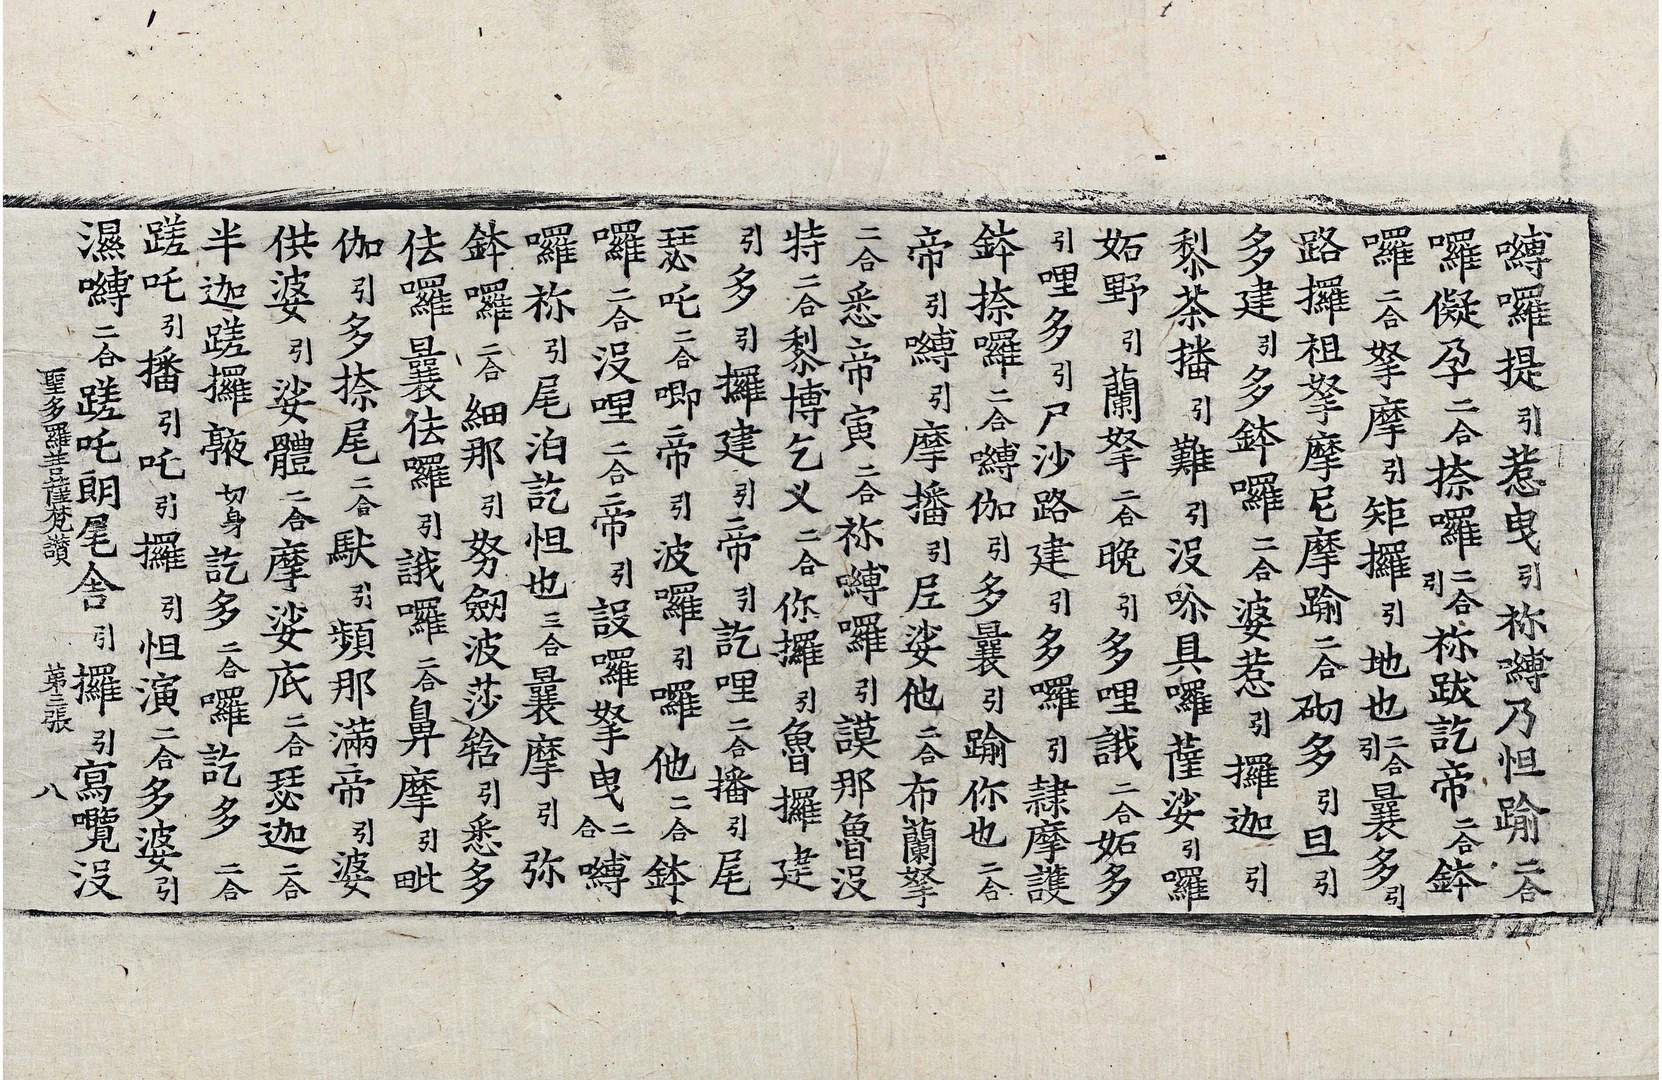 嚩囉提引惹曳引祢嚩乃怛踰二合
囉儗孕二合捺囉二合引祢跋訖帝二合鉢
囉二合拏摩引矩攞引地也二合引曩多引
路攞祖拏摩尼摩踰二合砌多引旦引
多建引多鉢囉二合婆惹引攞迦引
黎荼播引難引沒哧具囉薩娑引囉
妬野引蘭拏二合晚引多哩誐二合妬多
引哩多引尸沙路建引多囉引隷摩護
鉢捺囉二合嚩伽引多曩引踰你也二合
帝引嚩引摩播引𡰱娑他二合布蘭拏
二合悉帝寅二合祢嚩囉引謨那魯沒
特二合黎博乞义二合你攞引魯攞建
引多引攞建引帝引訖哩二合播引尾
瑟吒二合唧帝引波囉引囉他二合鉢
囉二合沒哩二合帝引設囉拏曳二合嚩
囉祢引尾泊訖怛也三合曩摩引弥
鉢囉二合細那引努劒波莎䇶引悉多
佉囉曩佉囉引誐囉二合鼻摩引毗
伽引多捺尾二合䭾引頻那滿帝引婆
供婆引娑體二合摩娑底二合瑟迦二合
半迦蹉攞歒切身訖多二合囉訖多二合
蹉吒引播引吒引攞引怛演二合多婆引
濕嚩二合蹉吒朗尾舍引攞引寫㘕沒
聖多羅菩薩梵讚 第三張 八